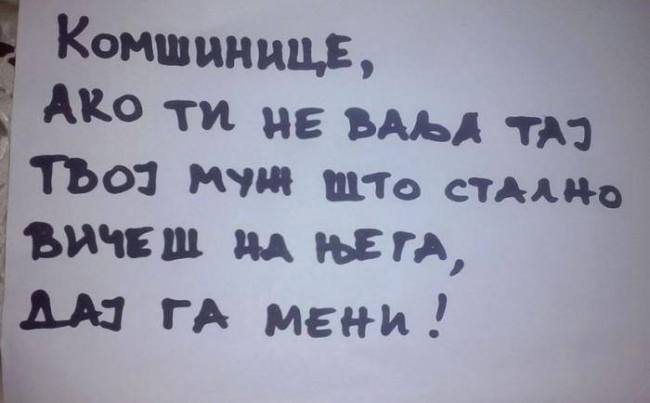 Комшинице,
ако ти не ваља тај
твој муж што стално
вичеш на њега,
дај га мени!